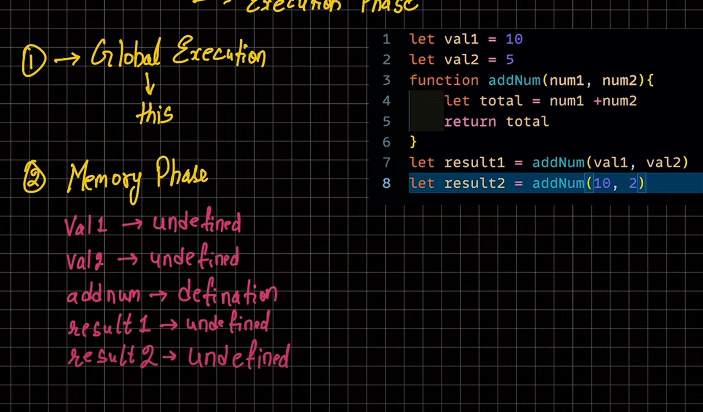 ↳ Execution Phase
① → Global Execution
↓
this
② Memory Phase
val1 → undefined
val2 → undefined
addnum → defination
result1 → undefined
result2 → undefined
1 let val1 = 10
2 let val2 = 5
3 function addNum(num1, num2){
4 let total = num1 +num2
5 return total
6 }
7 let result1 = addNum(val1, val2)
8 let result2 = addNum(10, 2)